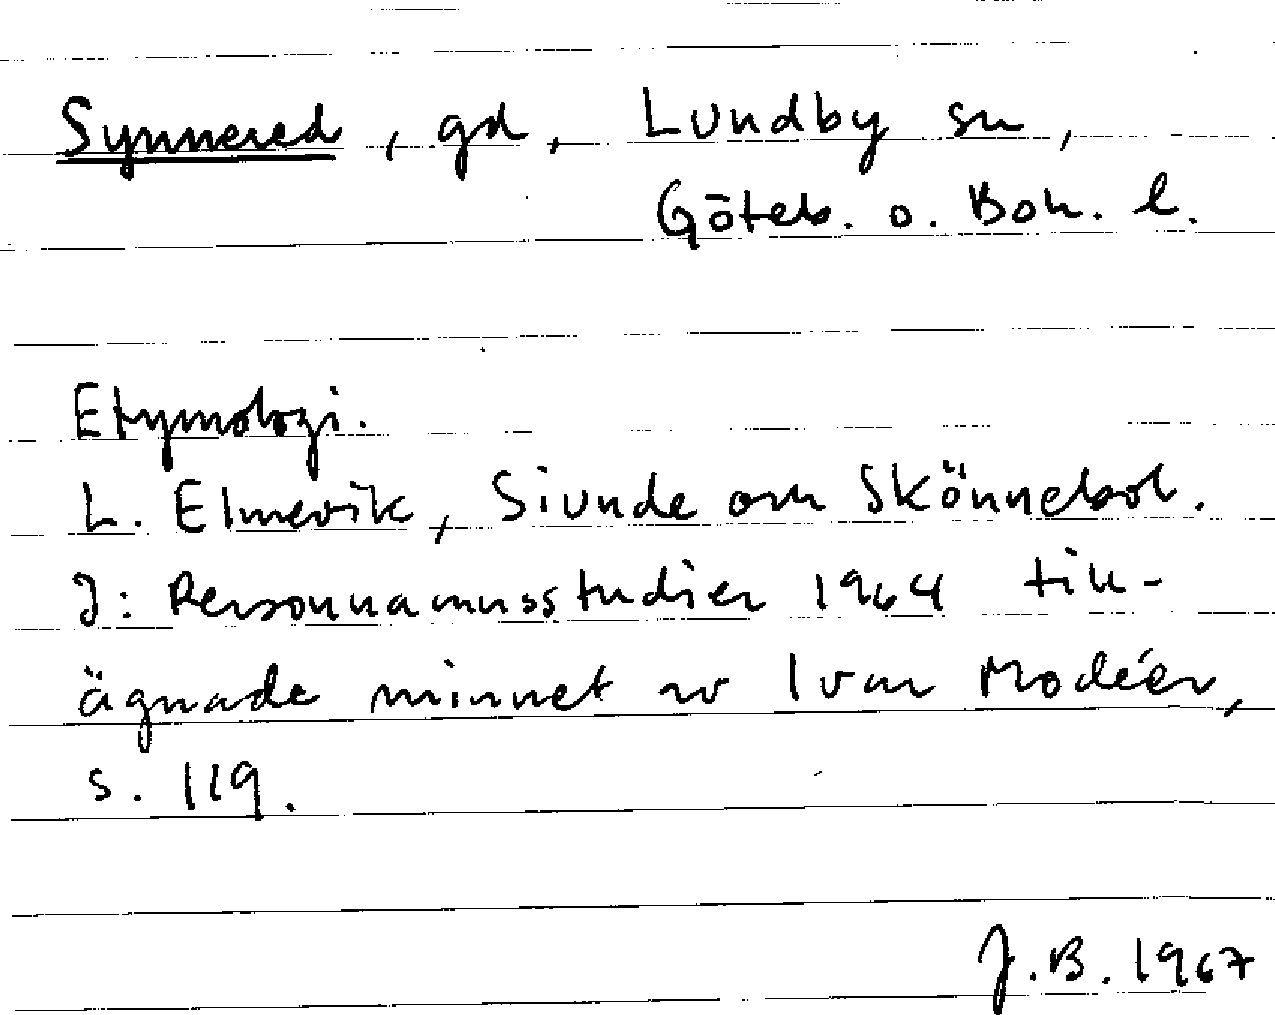 Synnered, gd, Lundby sn,
Göteb. o. Boh. l.
Etymologi.
L. Elmevik, Sivnde om Skönnebol.
I: Personnamnsstudier 1964 till-
ägnade minnet av Ivar Modéer,
s. 119.
J.B. 1967